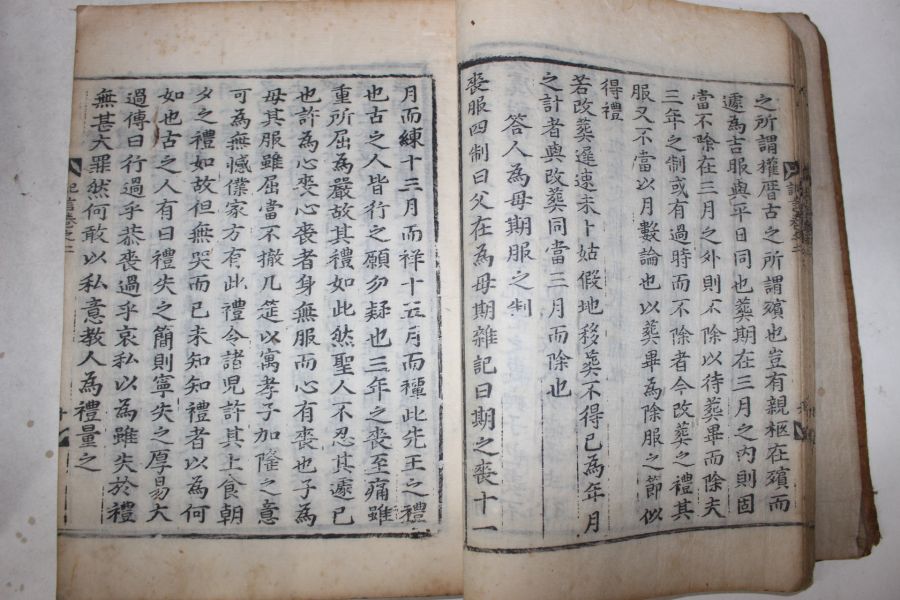 之所謂權厝古之所謂殯也豈有親柩在殯而
遽為吉服與平日同也葬期在三月之內則固
當不除在三月之外則不除以待葬畢而除夫
三年之制或有過時而不除者今改葬之禮其
服又不當以月數論也以葬畢為除服之節似
得禮
若改葬遲速未卜姑假地移葬不得已為年月
之計者與改葬同當三月而除也
答人為母期服之制
喪服四制曰父在為母期雜記曰期之喪十一
月而練十三月而祥十五月而禫此先王之禮
也古之人皆行之願勿疑也三年之喪至痛雖
重所屈為嚴故其禮如此然聖人不忍其遽已
也許為心喪心喪者身無服而心有喪也子為
母其服雖屈當不撤几筵以寓孝子加隆之意
可為無憾儂家方有此禮令諸児許其上食朝
夕之禮如故但無哭而已未知知禮者以為何
如也古之人有曰禮失之簡則寧失之厚易大
過傳曰行過乎恭喪過乎哀私以為雖失於禮
無甚大罪然何敢以私意教人為禮量之
記言卷之二